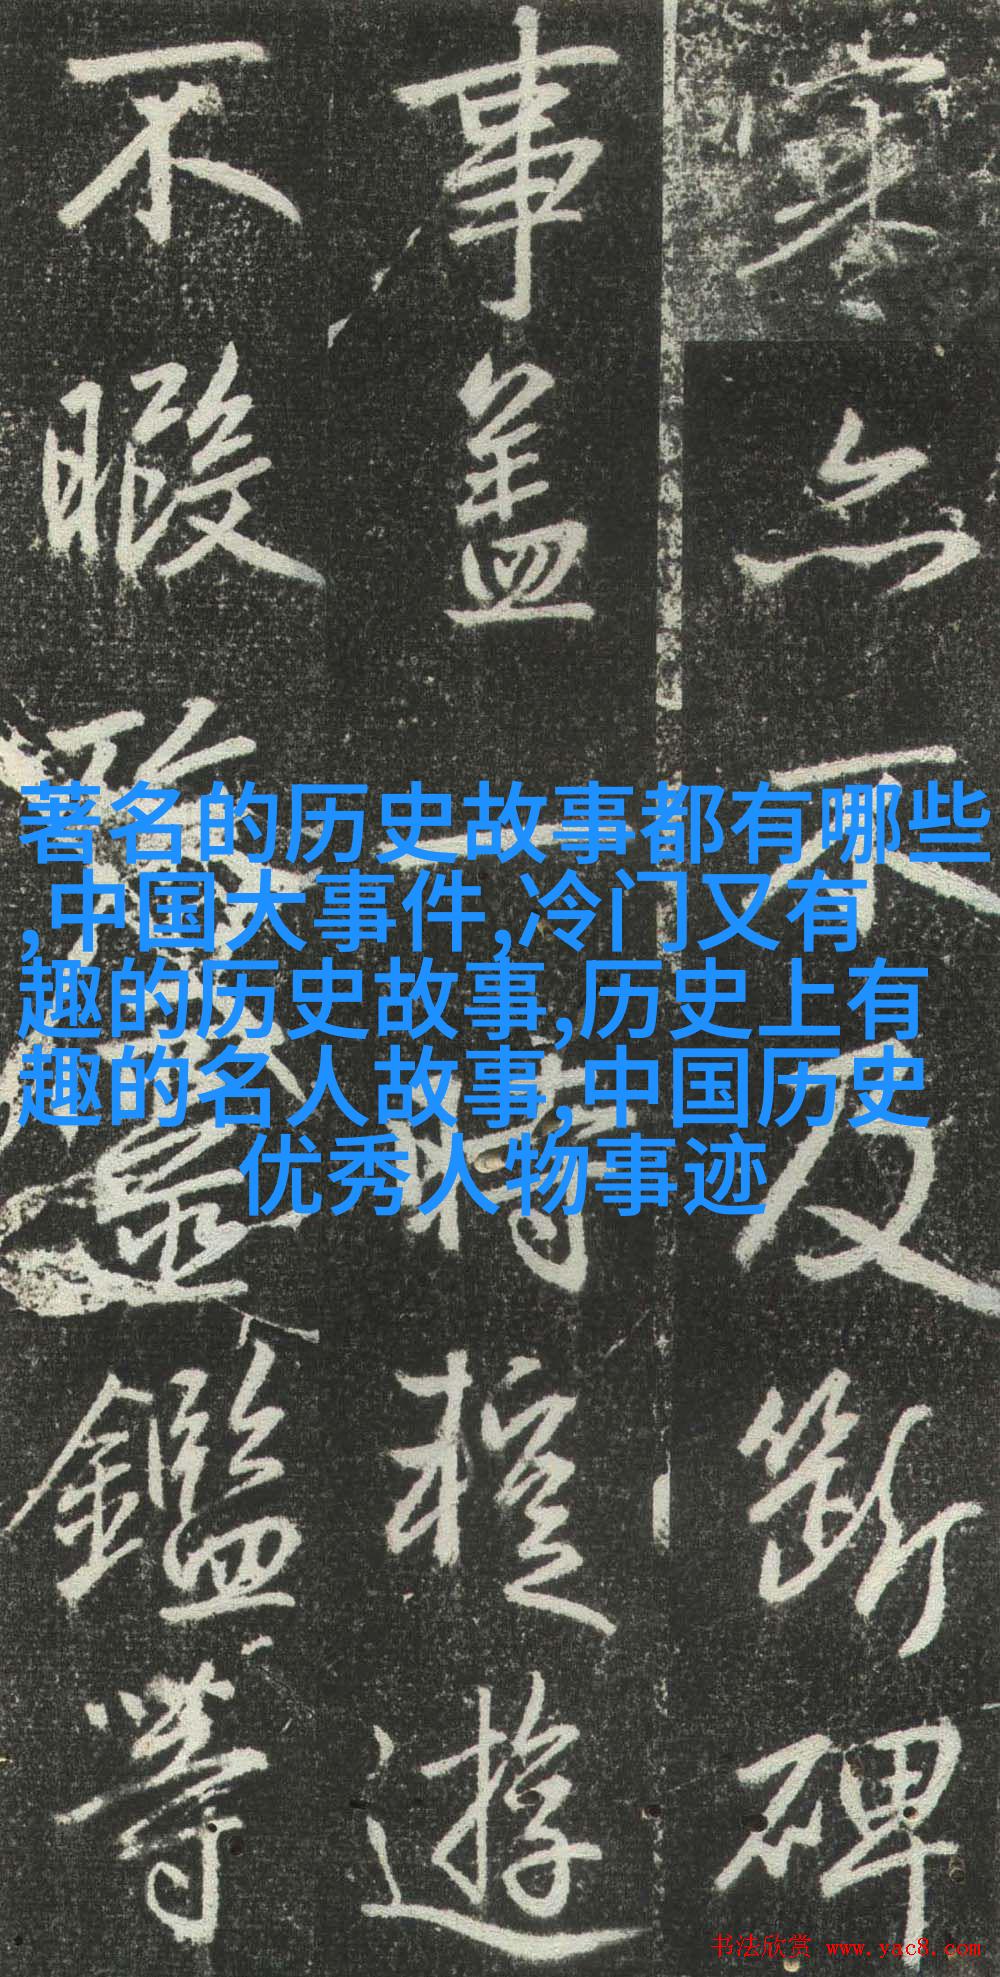 亦不及斷碑
事蓋一時遊
不暇鑑等
著名的历史故事都有哪些
,中国大事件,冷门又有
趣的历史故事,历史上有
趣的名人故事,中国历史
优秀人物事迹
书法欣赏 www.yac8.com